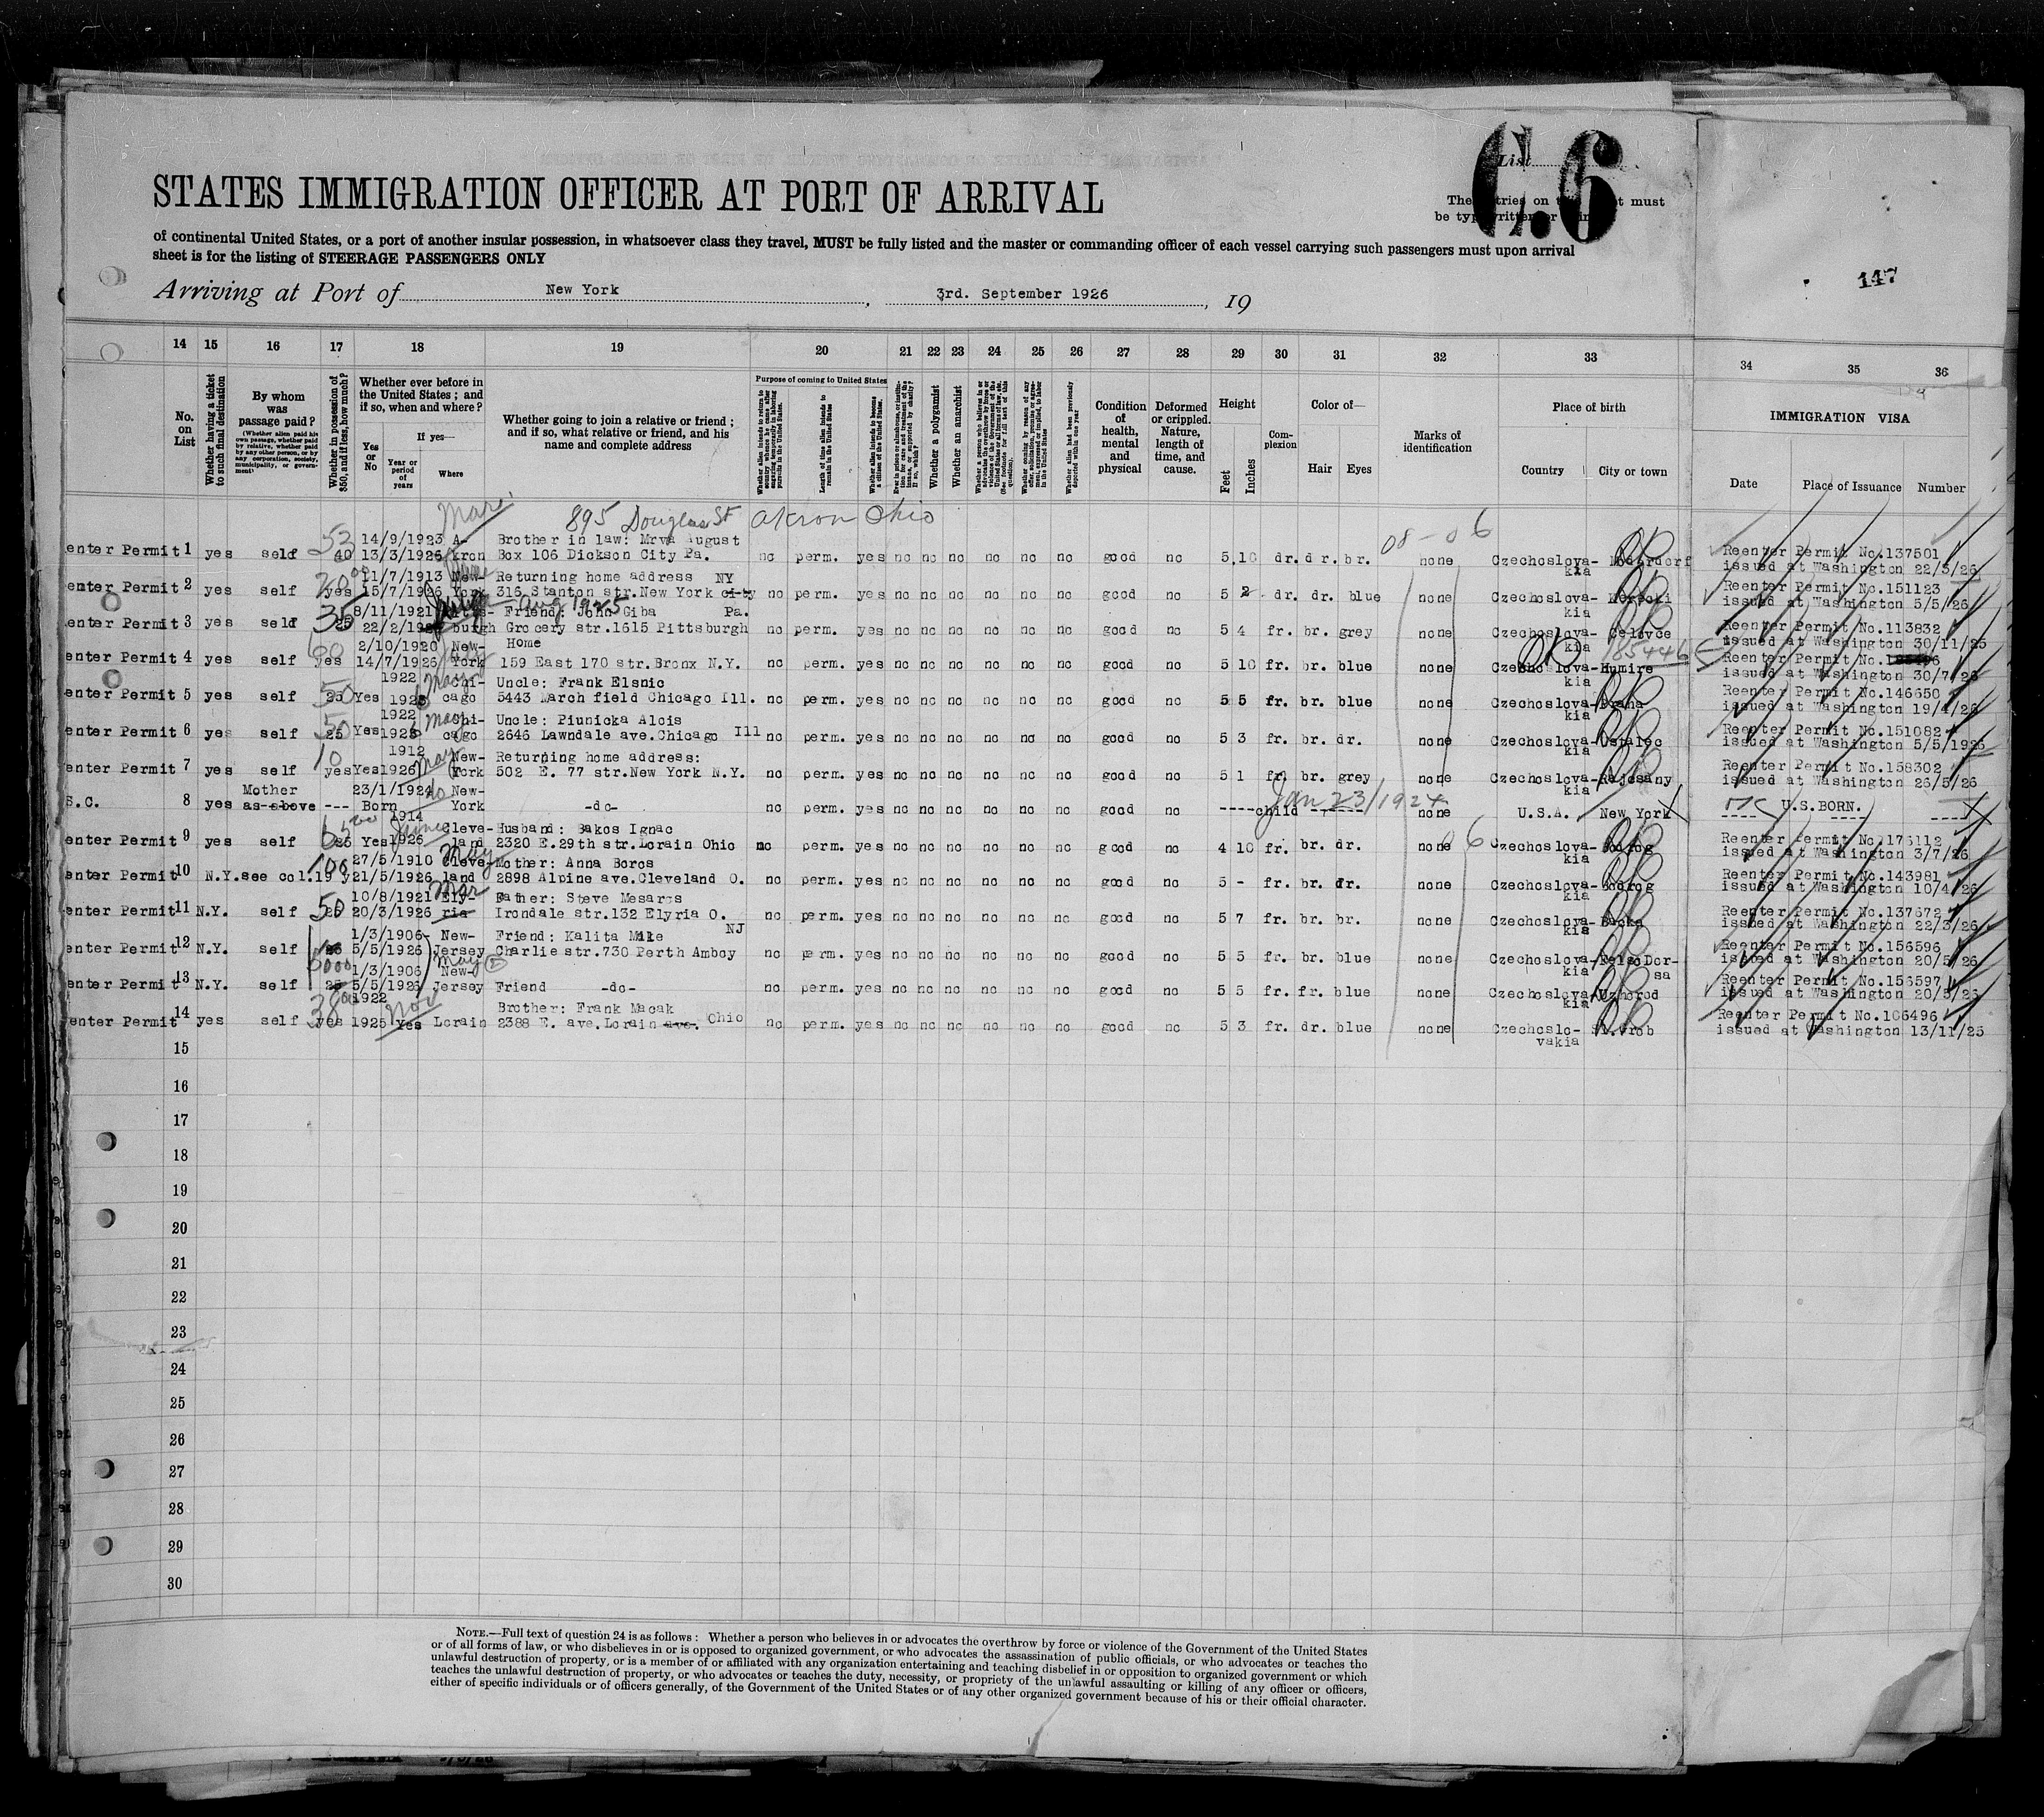 C.6
List
The entries on this sheet must
be typewritten or printed
STATES IMMIGRATION OFFICER AT PORT OF ARRIVAL
of continental United States, or a port of another insular possession, in whatsoever class they travel, MUST be fully listed and the master or commanding officer of each vessel carrying such passengers must upon arrival
sheet is for the listing of STEERAGE PASSENGERS ONLY
147
Arriving at Port of New York, 3rd. September 1926, 19
14 15 16 17 18 19 20 21 22 23 24 25 26 27 28 29 30 31 32 33 34 35 36
No. on List
Whether having a ticket to such final destination
By whom was passage paid?
(Whether alien paid his own passage, whether paid by relative, whether paid by any other person, or by any corporation, society, municipality, or government)
Whether in possession of $50, and if less, how much?
Whether ever before in the United States; and if so, when and where?
Yes or No
If yes—
Year or period of years
Where
Whether going to join a relative or friend; and if so, what relative or friend, and his name and complete address
Purpose of coming to United States
Length of time alien intends to remain in the United States
Whether alien intends to become a citizen of the United States.
Whether a polygamist
Whether an anarchist
Condition of health, mental and physical
Deformed or crippled. Nature, length of time, and cause.
Height
Feet
Inches
Complexion
Color of—
Hair Eyes
Marks of identification
Place of birth
Country City or town
IMMIGRATION VISA
Date Place of Issuance Number
895 Douglas St Akron Ohio
08-06
14/9/1923 A- Brother in law: Mrva August
enter Permit 1 yes self 40 13/3/1926 kron Box 106 Dickson City Pa. no perm. yes no no no no no no good no 5 10 dr. dr. br. none Czechoslova-kia Reenter Permit No.137501
issued at Washington 22/3/26
11/7/1913 New- Returning home address NY
enter Permit 2 yes self yes 15/7/1926 York 316 Stanton str. New York city no perm. yes no no no no no no good no 5 2 dr. dr. blue none Czechoslova-kia Reenter Permit No.151123
issued at Washington 5/5/26
35 8/11/1921 Aug 1925 Friend: John Giba Pa.
enter Permit 3 yes self 25 burgh Grocery str.1615 Pittsburgh no perm. yes no no no no no no good no 5 4 fr. br. grey none Czechoslova-kia Celovce Reenter Permit No.113832
issued at Washington 30/11/25
2/10/1920 New- Home
enter Permit 4 yes self yes 14/7/1926 York 159 East 170 str. Bronx N.Y. no perm. yes no no no no no no good no 5 10 fr. br. blue none Czechoslova-kia Humire 185446 Reenter Permit No.
issued at Washington 30/7/26
1922 Chi- Uncle: Frank Elsnic
enter Permit 5 yes self 25 Yes 1926 cago 5443 March field Chicago Ill. no perm. yes no no no no no no good no 5 5 fr. br. blue none Czechoslova-kia Praha Reenter Permit No.146650
issued at Washington 19/4/26
1922 Chi- Uncle: Piunicka Alois
enter Permit 6 yes self 25 Yes cago 2646 Lawndale ave. Chicago Ill no perm. yes no no no no no no good no 5 3 fr. br. dr. none Czechoslova-kia Reenter Permit No.151082
issued at Washington 5/5/1926
1912 New- Returning home address:
enter Permit 7 yes self yes Yes 1926 York 502 E. 77 str. New York N.Y. no perm. yes no no no no no no good no 5 1 fr. br. grey none Czechoslova-kia Reenter Permit No.158302
issued at Washington 26/5/26
Mother 23/1/1924 no New- Jan 23/1924
S.C. 8 yes as above --- Born York -do- no perm. yes no no no no no no good no ----child---- none U.S.A. New York U.S.BORN.
1914 Cleve- Husband: Bakos Ignac
enter Permit 9 yes self 25 Yes 1926 land 2320 E.29th str. Lorain Ohio no perm. yes no no no no no no good no 4 10 fr. br. dr. none Czechoslova-kia Reenter Permit No.176112
issued at Washington 3/7/26
100 27/5/1910 Cleve- Mother: Anna Boros
enter Permit 10 N.Y. see col.19 y 21/5/1926 land 2898 Alpine ave. Cleveland O. no perm. yes no no no no no no good no 5 - fr. br. dr. none Czechoslova-kia Bodrog Reenter Permit No.143981
issued at Washington 10/4/26
50 10/8/1921 Ely- Father: Steve Mesaros
enter Permit 11 N.Y. self 25 20/3/1926 ria Irondale str.132 Elyria O. no perm. yes no no no no no no good no 5 7 fr. br. br. none Czechoslova-kia Reenter Permit No.137672
issued at Washington 22/3/26
1/3/1906- New- Friend: Kalita Mile NJ
enter Permit 12 N.Y. self 5/5/1926 Jersey Charlie str.730 Perth Amboy no perm. yes no no no no no no good no 5 5 fr. br. blue none Czechoslova-kia Reenter Permit No.156596
issued at Washington 20/5/26
1/3/1906 New-
enter Permit 13 N.Y. self 25 5/5/1926 Jersey Friend -do- no perm. yes no no no no no no good no 5 5 fr. fr. blue none Czechoslova-kia Uzhorod Reenter Permit No.156597
issued at Washington 20/5/26
1922 Nov Brother: Frank Macak
enter Permit 14 yes self yes 1925 Yes Lorain 2388 E. ave. Lorain ave. Ohio no perm. yes no no no no no no good no 5 3 fr. dr. blue none Czechoslo-vakia Reenter Permit No.106496
issued at Washington 13/11/25
15
16
17
18
19
20
21
22
23
24
25
26
27
28
29
30
NOTE.—Full text of question 24 is as follows: Whether a person who believes in or advocates the overthrow by force or violence of the Government of the United States
or of all forms of law, or who disbelieves in or is opposed to organized government, or who advocates the assassination of public officials, or who advocates or teaches the
unlawful destruction of property, or is a member of or affiliated with any organization entertaining and teaching disbelief in or opposition to organized government or which
teaches the unlawful destruction of property, or who advocates or teaches the duty, necessity, or propriety of the unlawful assaulting or killing of any officer or officers,
either of specific individuals or of officers generally, of the Government of the United States or of any other organized government because of his or their official character.